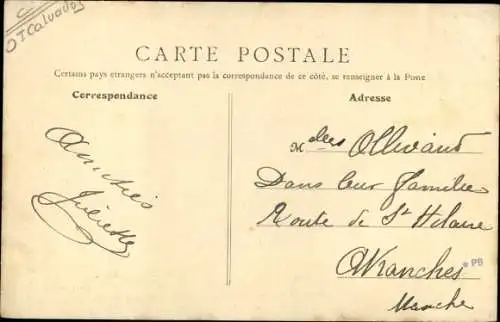 C
OTCalvados
CARTE POSTALE
Certains pays étrangers n'acceptant pas la correspondance de ce côté, se renseigner à la Poste
Correspondance
Adresse
Amitiés
Juliette
Mdes Ollivaud
Dans leur famille
Route de St Hilaire
Avranches
Manche
PB